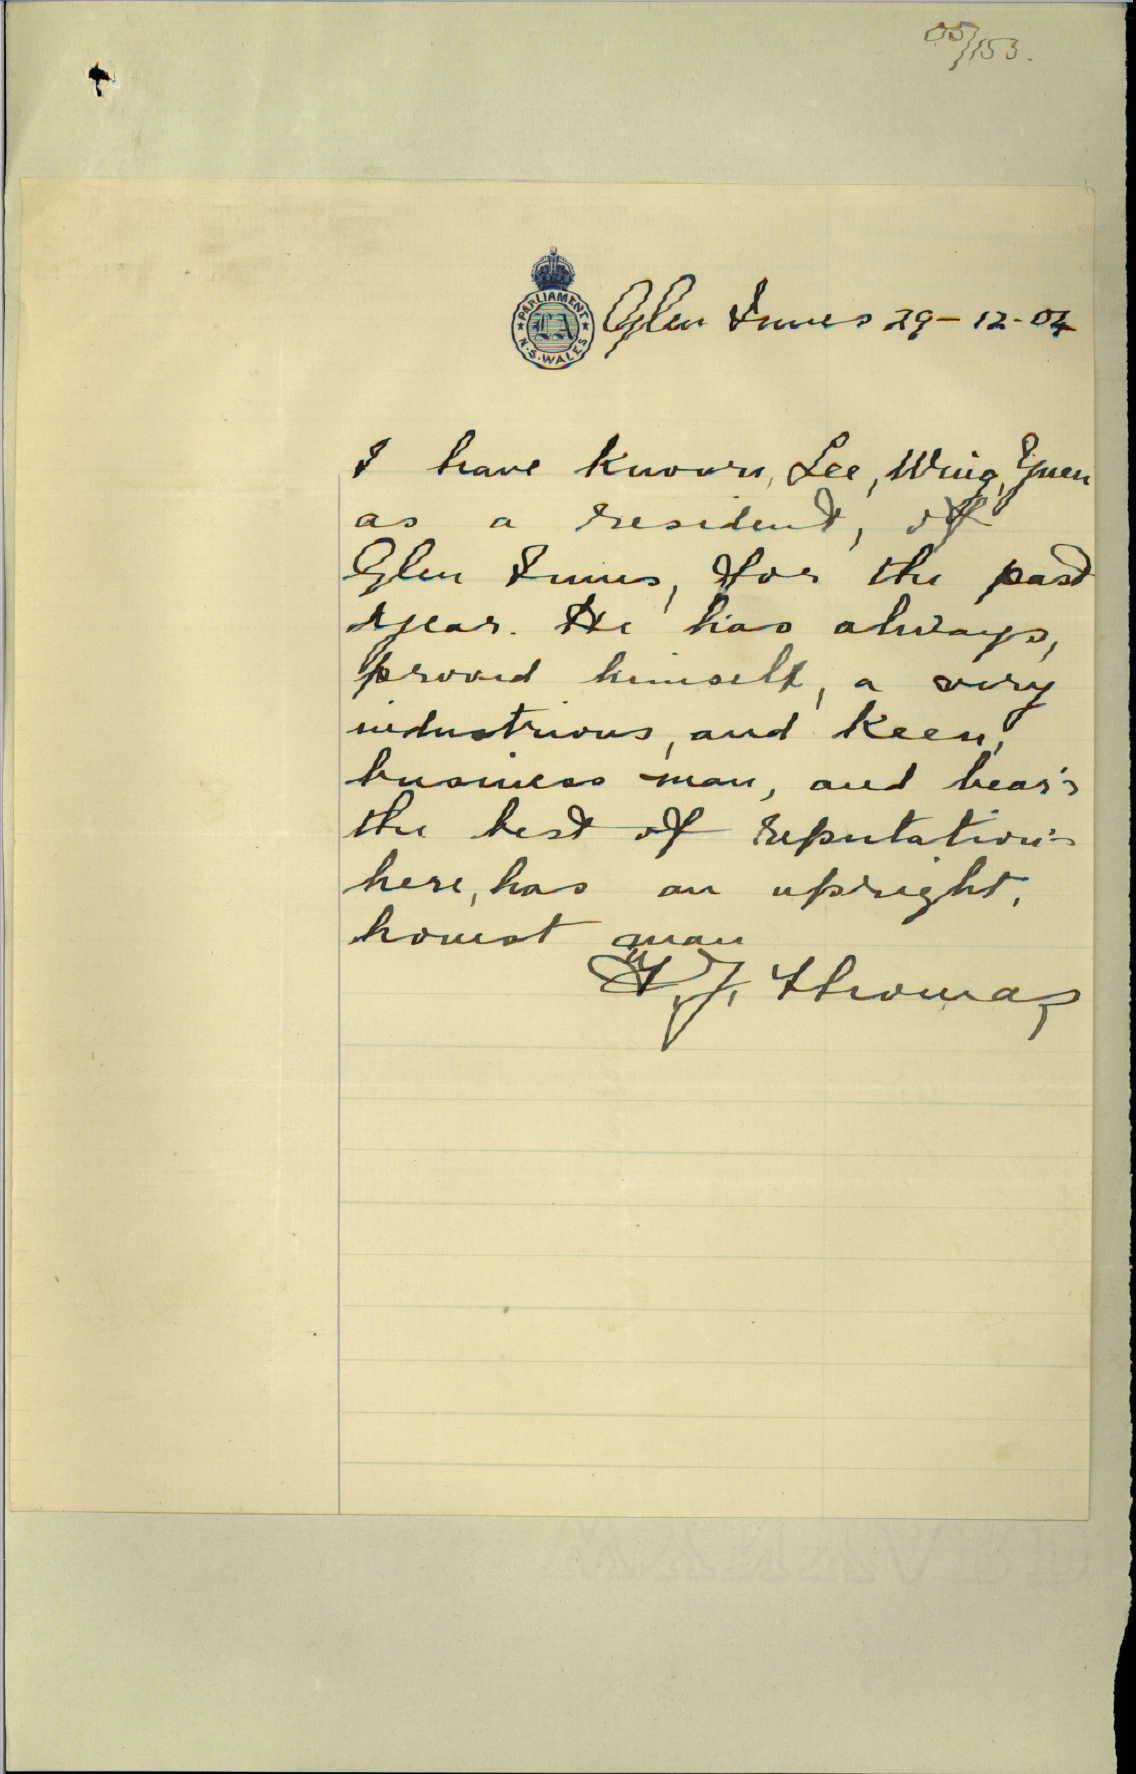 05/153.
PARLIAMENT
LA
N.S.WALES
Glen Innes 29-12-04
I have known, Lee, Wing, Yuen
as a resident, of
Glen Innes, for the past
year. He has always,
proved himself, a very
industrious, and keen,
business man, and bear's
the best of reputation's
here, has an upright,
honest man
F. J. Thomas